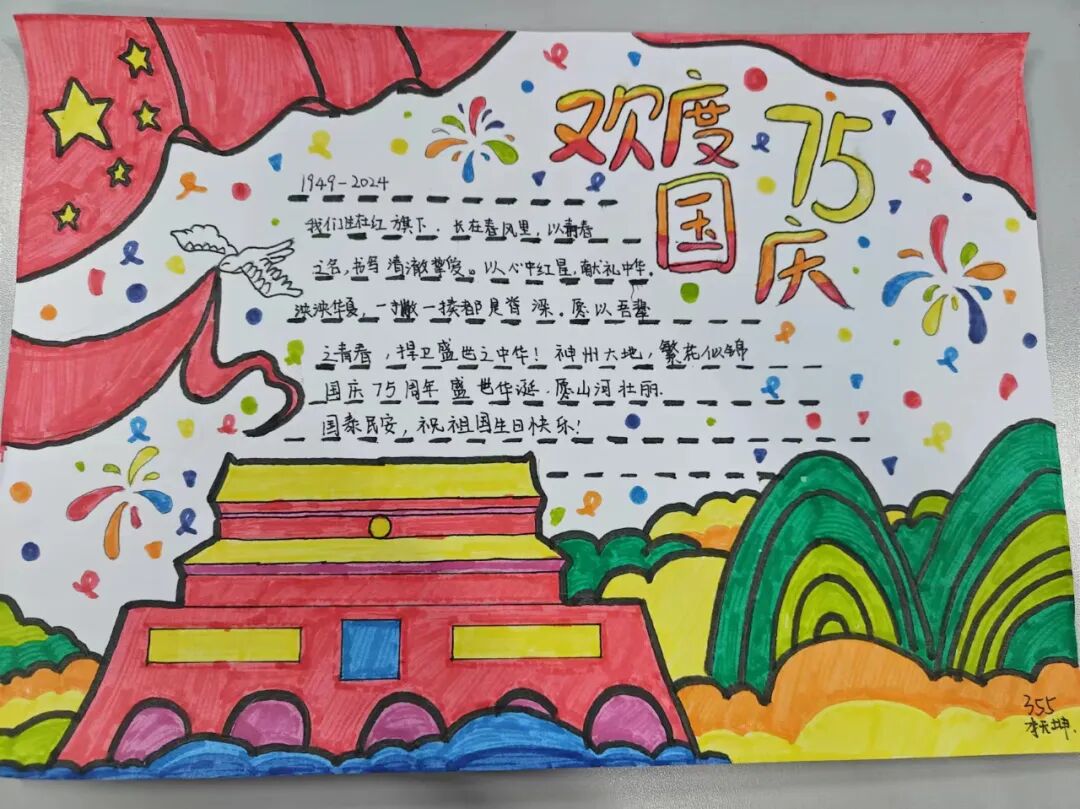 欢度
国
75
庆
1949-2024
我们生在红旗下.长在春风里,以青春
之名,书写清澈挚爱。以心中红星,献礼中华.
泱泱华夏,一撇一捺都是脊梁.愿以吾辈
之青春,捍卫盛世之中华!神州大地,繁花似锦
国庆75周年盛世华诞.愿山河壮丽.
国泰民安,祝祖国生日快乐!
355
李天坤.